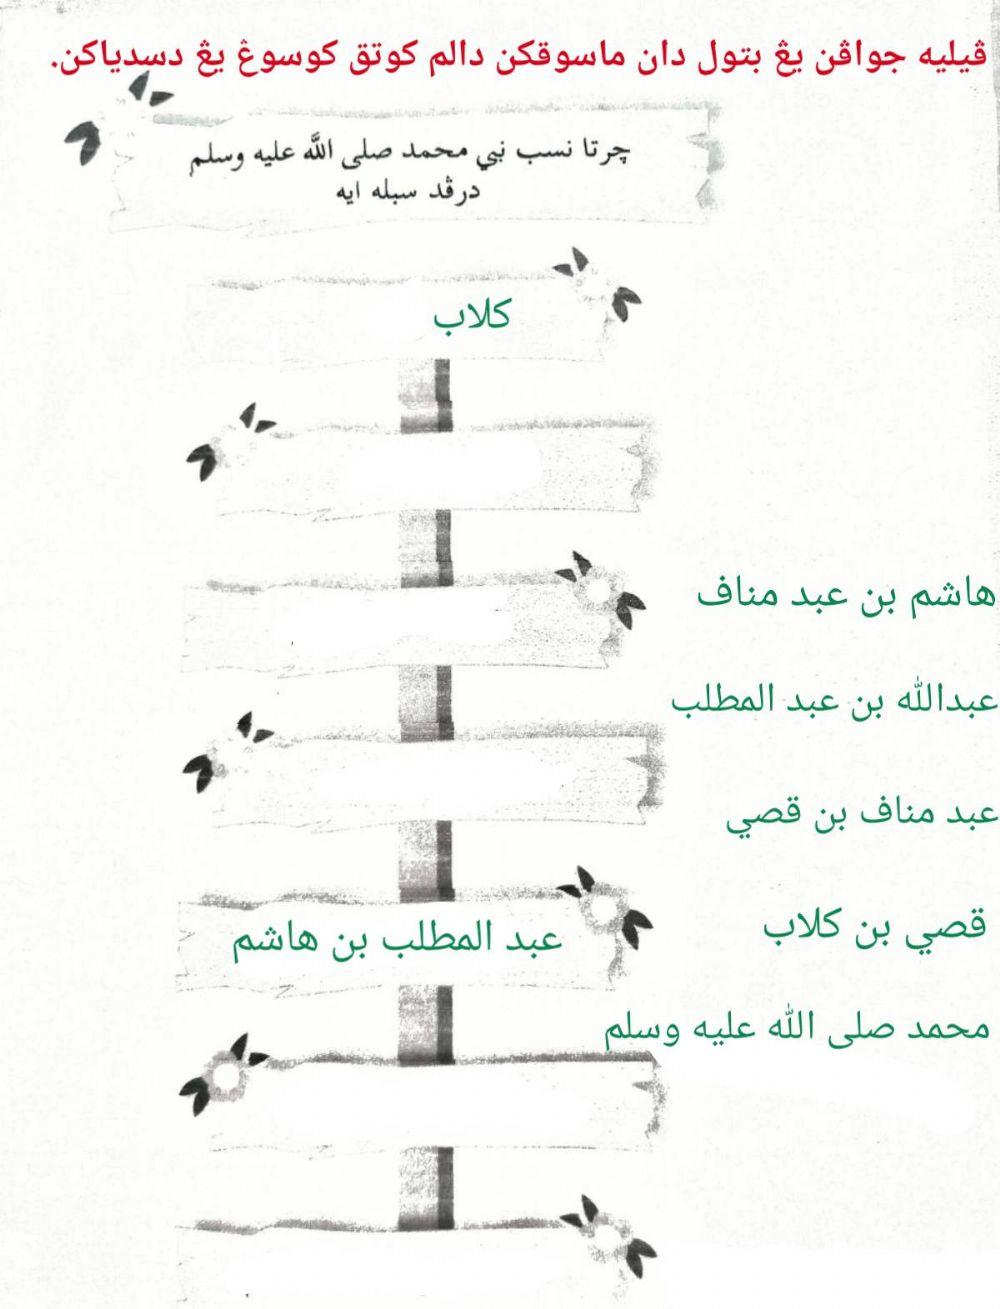 ڤيليه جواڤن يڠ بتول دان ماسوقكن دالم كوتق كوسوڠ يڠ دسدياكن.
چرتا نسب نبي محمد صلى اللّٰه عليه وسلم
درڤد سبله ايه
كلاب
هاشم بن عبد مناف
عبدالله بن عبد المطلب
عبد مناف بن قصي
قصي بن كلاب
عبد المطلب بن هاشم
محمد صلى الله عليه وسلم